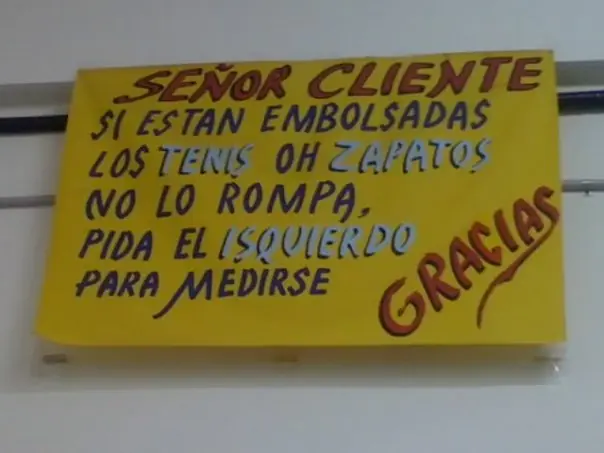 SEÑOR CLIENTE
SI ESTAN EMBOLSADAS
LOS TENIS OH ZAPATOS
NO LO ROMPA,
PIDA EL ISQUIERDO
PARA MEDIRSE
GRACIAS